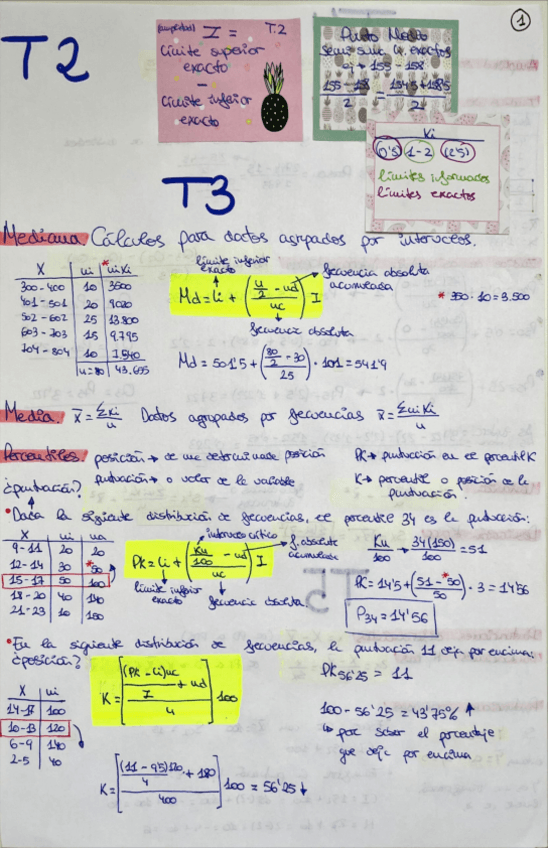 1
T2
(amplitud) I = T.2
Límite superior
exacto
-
Límite inferior
exacto
Punto Medio
semi suma lí. exactos
155 - 158
155-158 / 2 = 154'5+158'5 / 2
Xi
(0'5) 1-2 (2'5)
límites informados
límites exactos
T3
Mediana. Cálculos para datos agrupados por intervalos.
X ni *niXi
300-400 10 3500
401-501 20 9020
502-602 25 13.800
603-703 15 9.795
704-804 10 7.540
n=80 43.655
límite inferior
exacto
frecuencia absoluta
acumulada
Md = Li + ( n/2 - nd / nc ) I
frecuencia absoluta
* 350·10 = 3.500
Md = 501'5 + ( 80/2 - 30 / 25 ) · 101 = 541'9
Media. x̄ = ΣXi / n Datos agrupados por frecuencias x̄ = ΣniXi / n
Percentiles. posición → de una determinada posición
PK → puntuación en ese porcentil K
puntuación → o valor de la variable
K → porcentil o posición de la
puntuación.
¿puntuación?
• Dada la siguiente distribución de frecuencias, el porcentil 34 es la puntuación:
X ni na
9-11 20 20
12-14 30 *50
15-17 50 100
18-20 40 140
21-23 10 150
intervalo crítico
f. absoluta
acumulada
PK = Li + ( Kn/100 - nd / nc ) I
límite inferior
exacto
frecuencia absoluta
Kn/100 → 34(150)/100 = 51
PK = 14'5 + ( 51 - *50 / 50 ) · 3 = 14'56
P34 = 14'56
• En la siguiente distribución de frecuencias, la puntuación 11 deja por encima:
¿posición?
X ni
14-17 100
10-13 120
6-9 140
2-5 40
K = [ (PK - Li)nc / I + nd / n ] 100
PK56'25 = 11
100 - 56'25 = 43'75% ↑
↳ para saber el porcentaje
que deja por encima
K = [ (11 - 9'5)120 / 4 + 180 / 400 ] 100 = 56'25 ↓